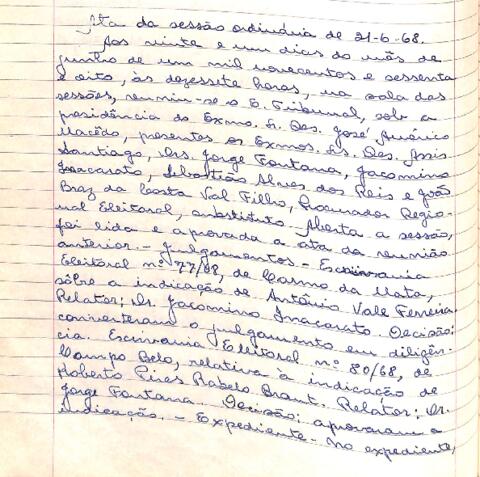 Ata da sessão ordinária de 21-6-68.
Aos vinte e um dias do mês de
junho de um mil novecentos e sessenta
e oito, às dezessete horas, na sala das
sessões, reuniu-se o E. Tribunal, sob a
presidência do Exmo. Sr. Des. José Américo
Macêdo, presentes os Exmos. Srs. Des. Assis
Santiago, Drs. Jorge Fontana, Jacomino
Inacarato, Sebastião Alves dos Reis e João
Braz da Costa Val Filho, Procurador Regio-
nal Eleitoral, substituto. Aberta a sessão,
foi lida e aprovada a ata da reunião
anterior. - Julgamentos - Escrivania
Eleitoral nº 77/68, de Carmo da Mata,
sôbre a indicação de Antônio Vale Ferreira.
Relator; Dr. Jacomino Inacarato. Decisão:
converteram o julgamento em diligên-
cia. Escrivania Eleitoral nº 80/68, de
Campo Belo, relativa à indicação de
Roberto Pires Rabelo Brant. Relator; Dr.
Jorge Fontana. Decisão: aprovaram a
indicação. - Expediente - No expediente,